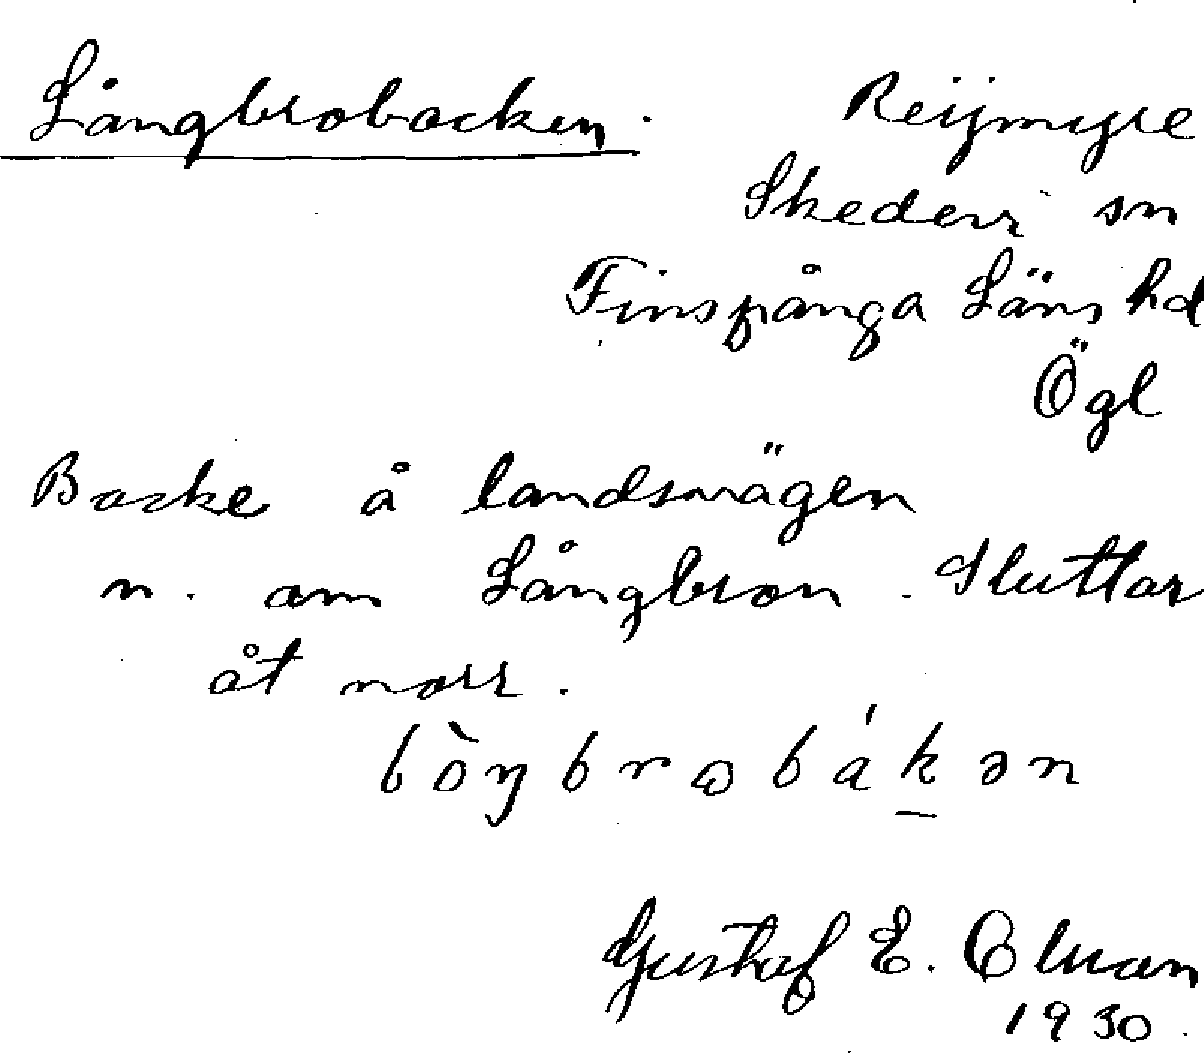 Långbrobacken. Reijmyre
Skedevi sn
Finspånga Läns hd
Ögl
Backe å landsvägen
n. om Långbron. Sluttar
åt norr.
Gustaf E.
1930.